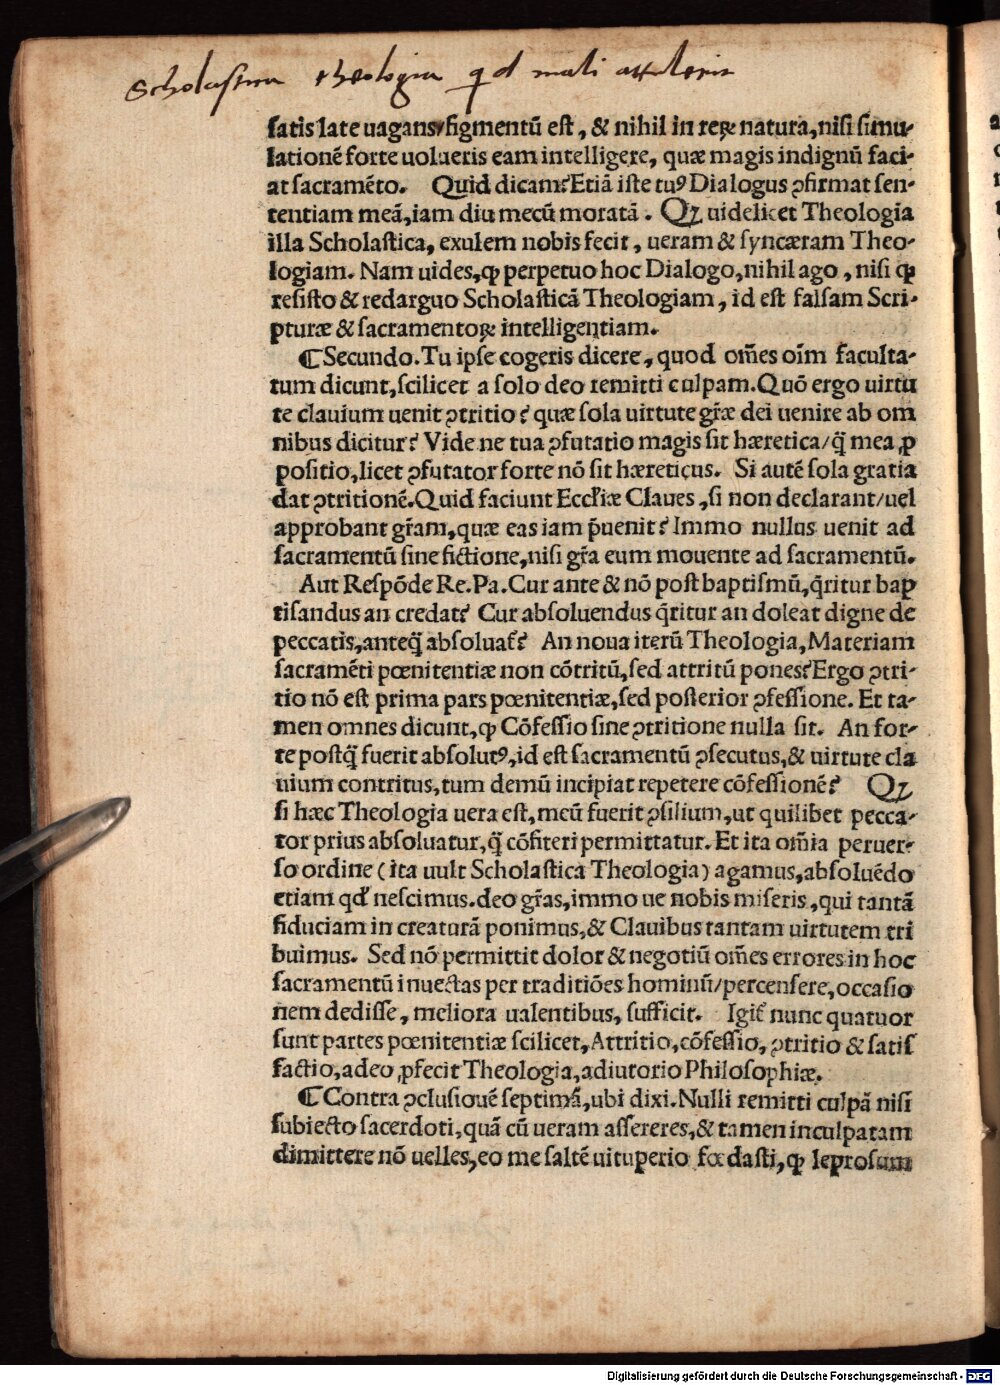 Scholastica theologia qd mali attulerit
satis late uagans/figmentū est, & nihil in reꝝ natura, nisi simu-
lationē forte uolueris eam intelligere, quæ magis indignū faci-
at sacramēto. Quid dicam? Etiā iste tuꝰ Dialogus ꝯfirmat sen-
tentiam meā, iam diu mecū moratā. Qꝫ uidelicet Theologia
illa Scholastica, exulem nobis fecit, ueram & syncæram Theo-
logiam. Nam uides, ꝙ perpetuo hoc Dialogo, nihil ago, nisi ꝙ
resisto & redarguo Scholasticā Theologiam, id est falsam Scri-
pturæ & sacramentoꝝ intelligentiam.
¶ Secundo. Tu ipse cogeris dicere, quod om̄es oīm faculta-
tum dicunt, scilicet a solo deo remitti culpam. Quō ergo uirtu
te clauium uenit ꝯtritio? quæ sola uirtute gr̄æ dei uenire ab om
nibus dicitur? Vide ne tua ꝯfutatio magis sit hæretica/q̄ mea ꝓ
positio, licet ꝯfutator forte nō sit hæreticus. Si autē sola gratia
dat ꝯtritionē. Quid faciunt Eccl̄iæ Claues, si non declarant/uel
approbant gr̄am, quæ eas iam p̄uenit? Immo nullus uenit ad
sacramentū sine fictione, nisi gr̄a eum mouente ad sacramentū.
Aut Respōde Re. Pa. Cur ante & nō post baptismū, q̄ritur bap
tisandus an credat? Cur absoluendus q̄ritur an doleat digne de
peccatis, anteq̄ absoluat̄? An noua iterū Theologia, Materiam
sacramēti pœnitentiæ non cōtritū, sed attritū pones? Ergo ꝯtri-
tio nō est prima pars pœnitentiæ, sed posterior ꝯfessione. Et ta-
men omnes dicunt, ꝙ Cōfessio sine ꝯtritione nulla sit. An for-
te postq̄ fuerit absolutꝰ, id est sacramentū ꝯsecutus, & uirtute cla
uium contritus, tum demū incipiat repetere cōfessionē? Qꝫ
si hæc Theologia uera est, meū fuerit ꝯsilium, ut quilibet pecca-
tor prius absoluatur, q̄ cōfiteri permittatur. Et ita om̄ia peruer-
so ordine (ita uult Scholastica Theologia) agamus, absoluēdo
etiam qd̄ nescimus. deo gr̄as, immo ue nobis miseris, qui tantā
fiduciam in creaturā ponimus, & Clauibus tantam uirtutem tri
buimus. Sed nō permittit dolor & negotiū om̄es errores in hoc
sacramentū inuectas per traditiōes hominū/percensere, occasio
nem dedisse, meliora ualentibus, sufficit. Igit̄ nunc quatuor
sunt partes pœnitentiæ scilicet, Attritio, cōfessio, ꝯtritio & satis
factio, adeo ꝓfecit Theologia, adiutorio Philosophiæ.
¶ Contra ꝯclusionē septimā, ubi dixi. Nulli remitti culpā nisi
subiecto sacerdoti, quā cū ueram assereres, & tamen inculpatam
dimittere nō uelles, eo me saltē uituperio fœdasti, ꝙ leprosum
Digitalisierung gefördert durch die Deutsche Forschungsgemeinschaft - DFG